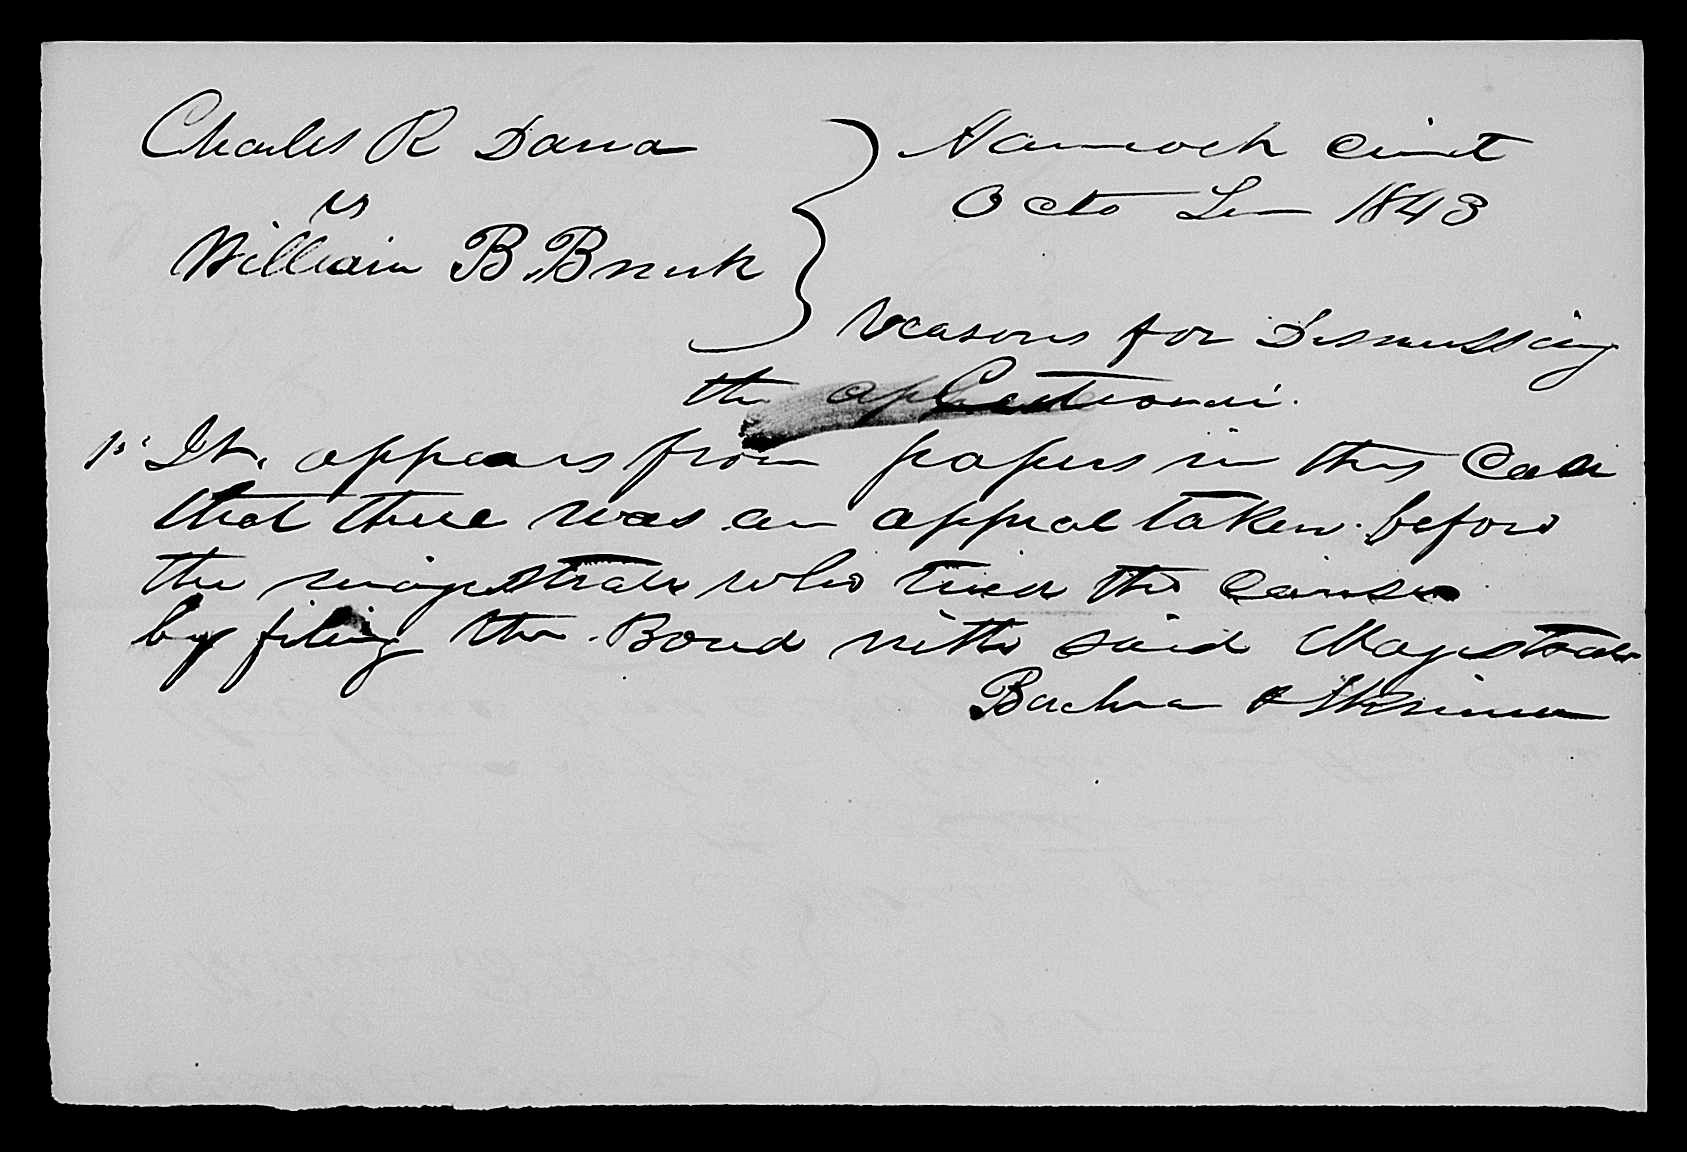 Charles R Dana
vs
William B. Brush
Hancock Circuit
Octo Ter 1843
reasons for Dismissing
the
1st It. appears from papers in this Case
that there was an appeal taken before
the magistrate who tried the cause
by filing the Bond with said Magistrate
& Skinner